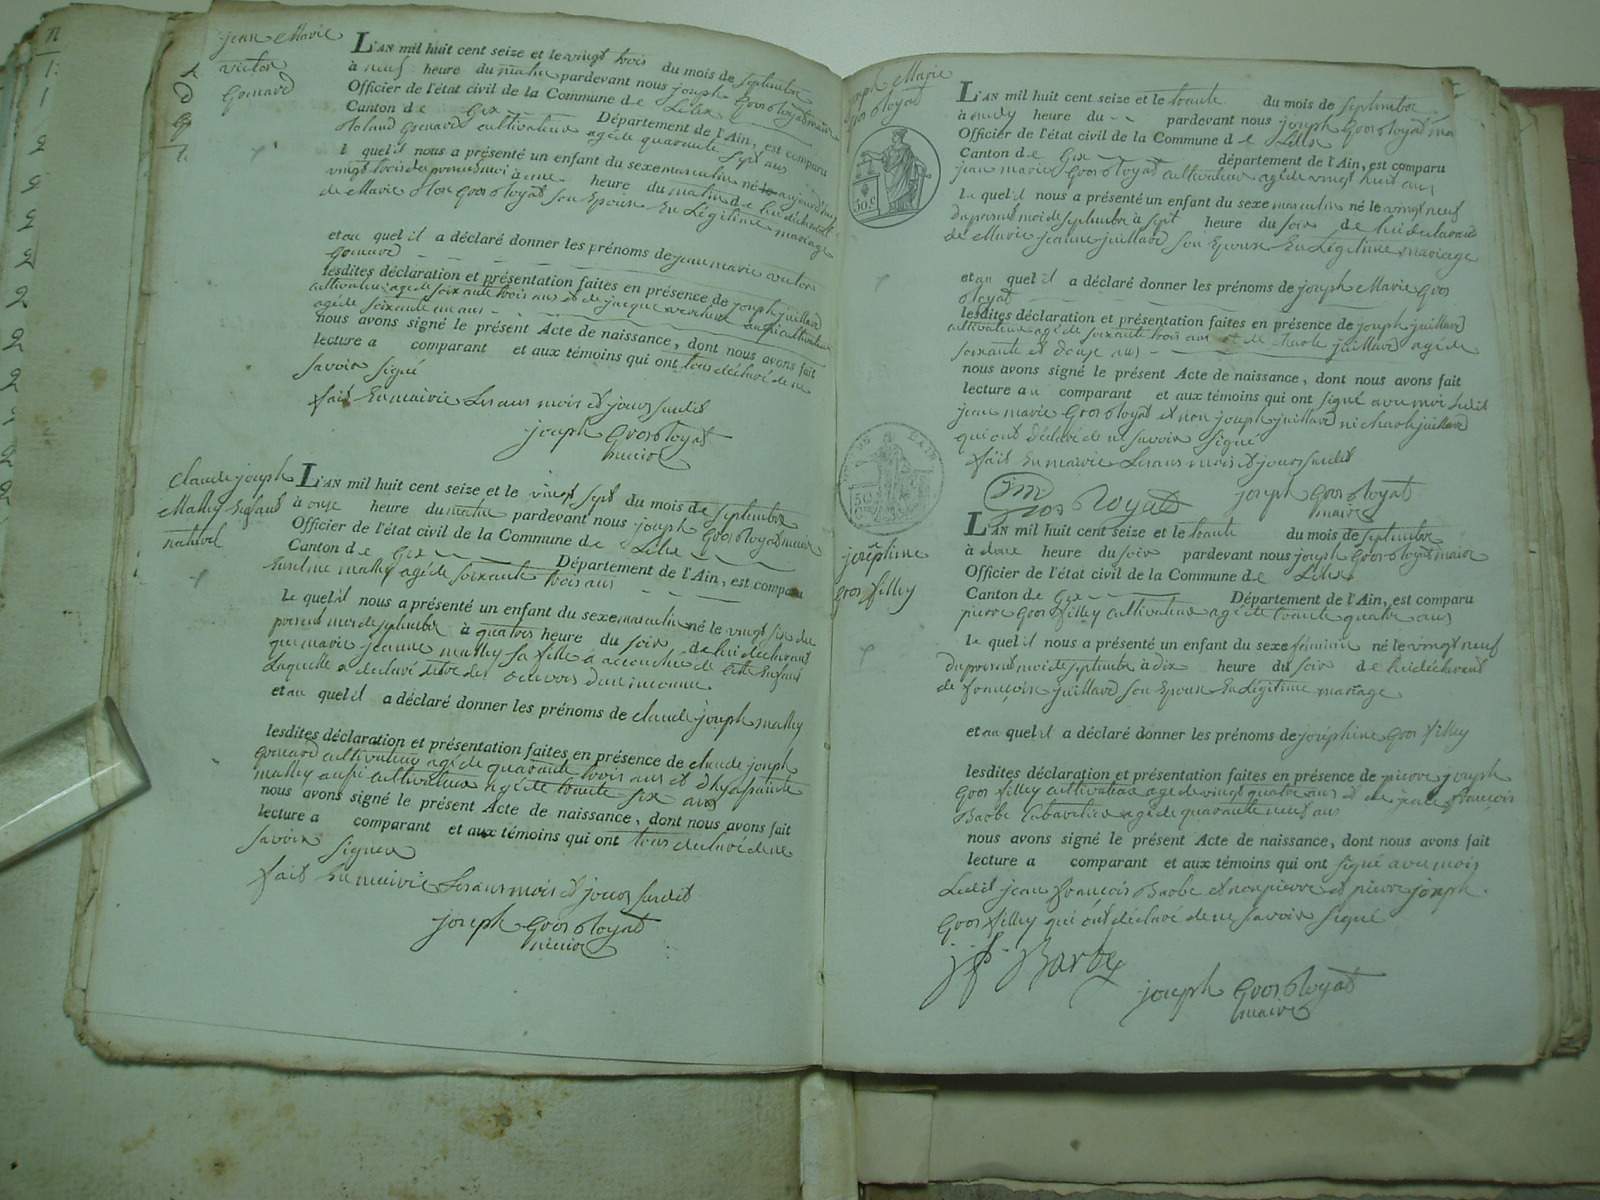 jean Marie
victor
Gonard
L'AN mil huit cent seize et le vingt trois du mois de Septembre
à neuf heure du matin pardevant nous joseph Gros Royat maire
Officier de l'état civil de la Commune de Lelex
Canton de Gex Département de l'Ain, est comparu
Roland Gonard cultivateur agé de quarante Sept ans
le quel il nous a présenté un enfant du sexe masculin né le aujourd'huy
vingt trois du present moi à une heure du matin de lui déclarant
de Marie Gros Royat Son Epouse En Légitime mariage
et au quel il a déclaré donner les prénoms de jean marie victor
Gonard
lesdites déclaration et présentation faites en présence de joseph juillard
cultivateur agé de soixante trois ans et de jacque aussi cultivateur
agé de soixante un ans
nous avons signé le présent Acte de naissance, dont nous avons fait
lecture a comparant et aux témoins qui ont tous déclaré de ne
savoir signé
fait En mairie Les ans mois et jours susdit
joseph Gros Royat
maire
Claude joseph
Malley Enfant
naturel
L'AN mil huit cent seize et le vingt sept du mois de Septembre
à onze heure du matin pardevant nous joseph Gros Royat maire
Officier de l'état civil de la Commune de Lelex
Canton de Gex Département de l'Ain, est comparu
malley agé de soixante trois ans
le quel il nous a présenté un enfant du sexe masculin né le vingt six du
present moi de septembre à quatres heure du soir de lui déclarant
que marie jeanne malley sa fille à accouchée de cette Enfant
laquelle a déclaré être des œuvres d'un inconnu.
et au quel il a déclaré donner les prénoms de claude joseph malley
lesdites déclaration et présentation faites en présence de claude joseph
Gonard cultivateur agé de quarante trois ans et d'hyasainte
malley aussi cultivateur agé de trente six ans
nous avons signé le présent Acte de naissance, dont nous avons fait
lecture a comparant et aux témoins qui ont tous déclaré de ne
savoir signer
fait En mairie Les ans mois et jours susdit
joseph Gros Royat
maire
joseph Marie
Gros Royat
50 C
L'AN mil huit cent seize et le trente du mois de Septembre
à midy heure du pardevant nous joseph Gros Royat ma
Officier de l'état civil de la Commune de Lelex
Canton de Gex département de l'Ain, est comparu
jean marie Gros Royat cultivateur agé de vingt huit ans
le quel il nous a présenté un enfant du sexe masculin né le vingt neuf
du present moi de septembre à sept heure du soir de lui déclarant
de Marie jeanne juillard son Epouse En Légitime mariage
et au quel il a déclaré donner les prénoms de joseph Marie Gros
Royat
lesdites déclaration et présentation faites en présence de joseph juillard
cultivateur agé de soixante trois ans et de charle juillard agé de
soixante et douze ans
nous avons signé le présent Acte de naissance, dont nous avons fait
lecture au comparant et aux témoins qui ont signé avec moi ledit
jean marie Gros Royat et non joseph juillard ni charle juillard
qui ont déclaré de ne savoir signé
fait En mairie Les ans mois et jours susdit
jm Gros Royat joseph Gros Royat
maire
DE L'AIN
joséphine
Gros filley
L'AN mil huit cent seize et le trente du mois de septembre
à douze heure du soir pardevant nous joseph Gros Royat maire
Officier de l'état civil de la Commune de Lelex
Canton de Gex Département de l'Ain, est comparu
pierre Gros filley cultivateur agé de trente quatre ans
le quel il nous a présenté un enfant du sexe féminin né le vingt neuf
du present moi de septembre à dix heure du soir de lui déclarant
de françoise juillard son Epouse En Légitime mariage
et au quel il a déclaré donner les prénoms de joséphine Gros filley
lesdites déclaration et présentation faites en présence de pierre joseph
Gros filley cultivateur agé de vingt quatre ans et de jean françois
Barbe agé de quarante neuf ans
nous avons signé le présent Acte de naissance, dont nous avons fait
lecture a comparant et aux témoins qui ont signé avec moi
Ledit jean françois Barbe et non pierre et pierre joseph
Gros filley qui ont déclaré de ne savoir signé
jf Barbe
joseph Gros Royat
maire